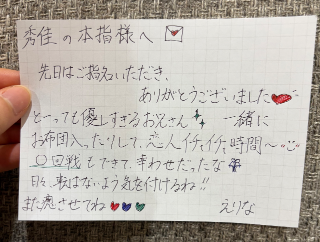 秀隹の本指様へ
先日はご指名いただき、
ありがとうございました
とーっても優しすぎるお兄さん 一緒に
お布団入ったりして、恋人イチャイチャ時間〜
〇回戦もできて、幸せだったな
日々、転はないよう気を付けるね!!
また癒させてね
えりな